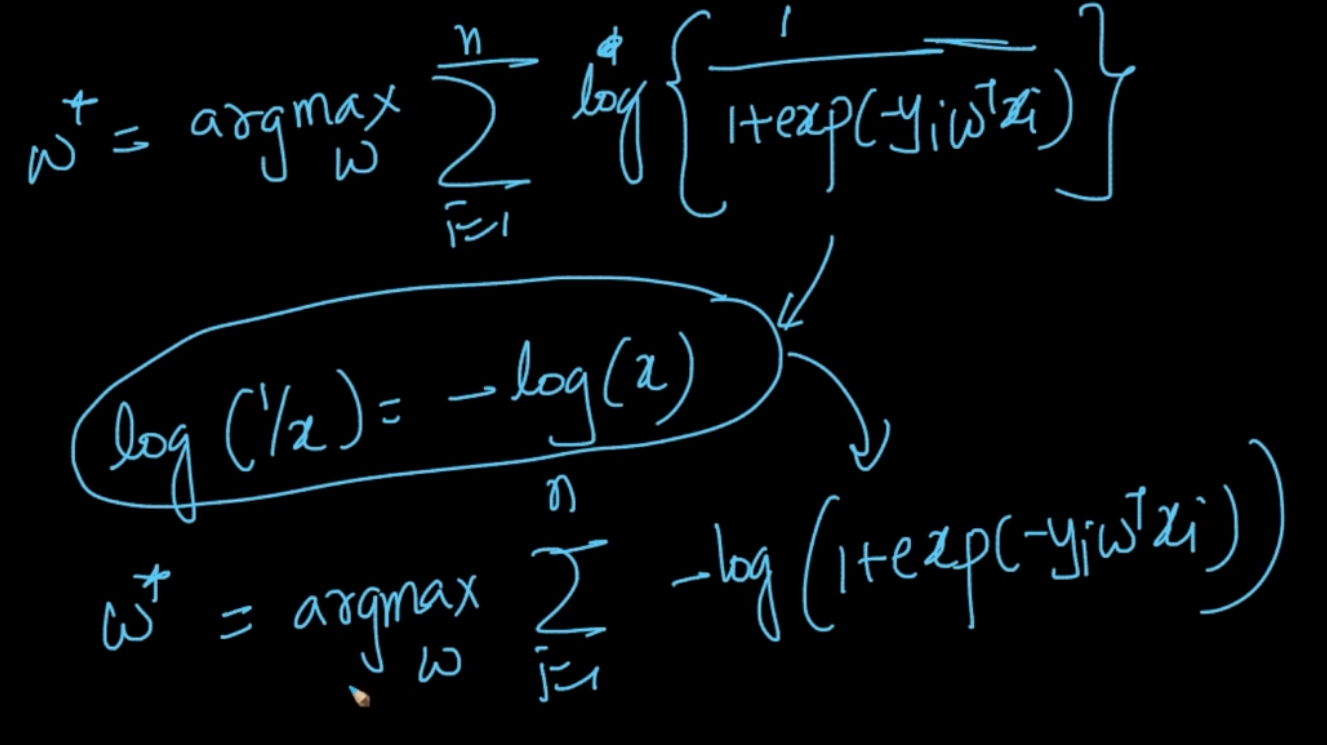 w* = argmax_w Σ_{i=1}^{n} log { 1 / 1+exp(-y_i w^T x_i) }
log (1/x) = -log(x)
w* = argmax_w Σ_{i=1}^{n} -log (1+exp(-y_i w^T x_i))